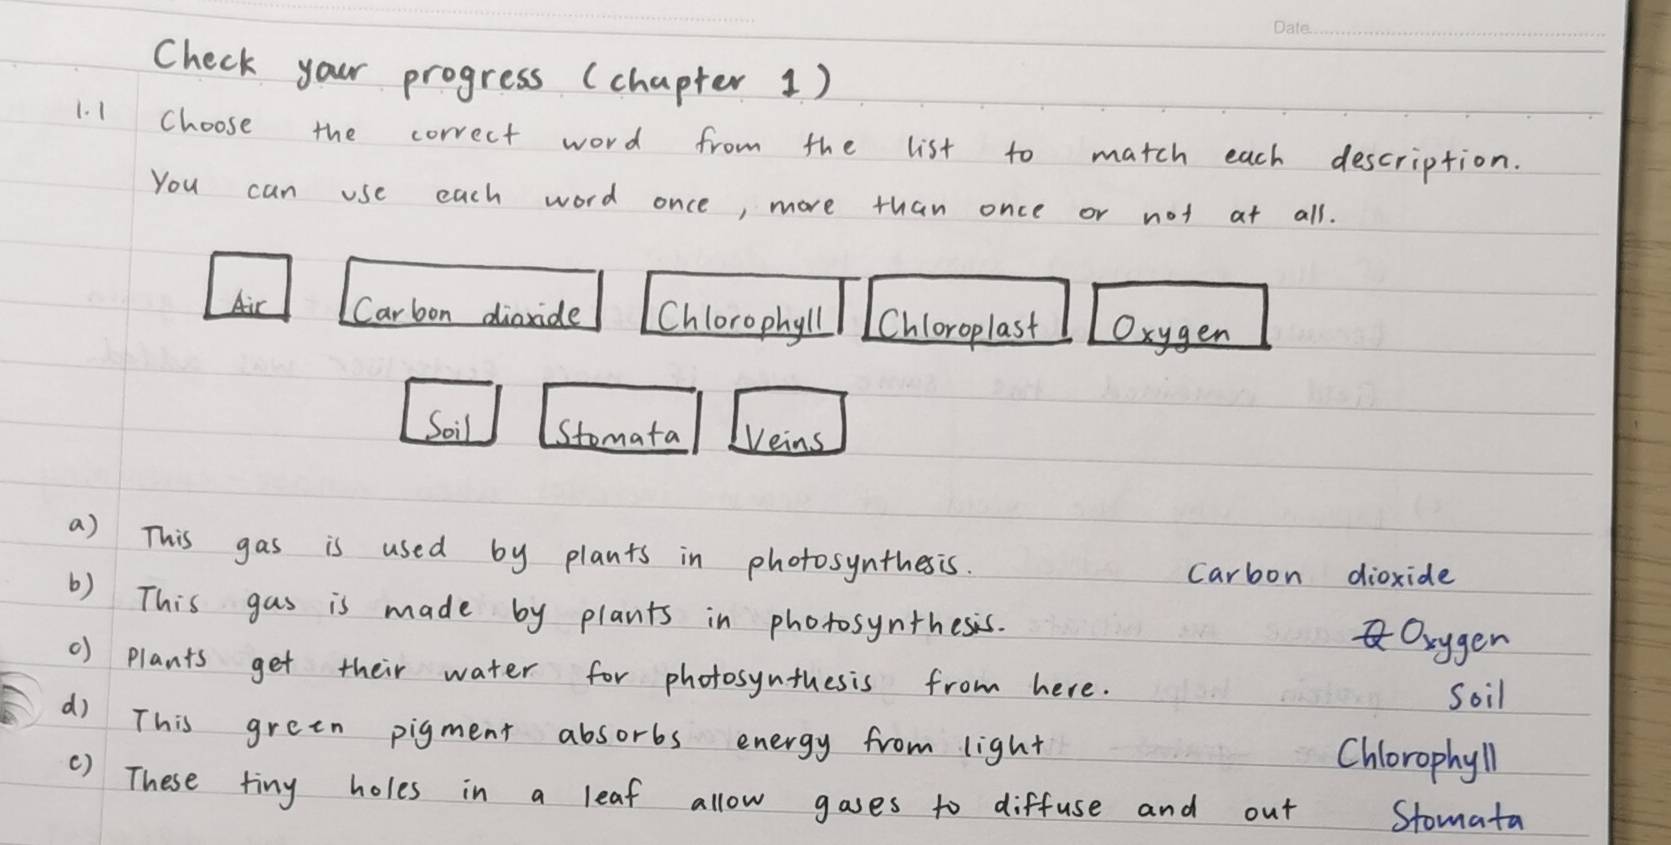 Date
Check your progress (chapter 1)
1.1 Choose the correct word from the list to match each description.
You can use each word once, more than once or not at all.
Air Carbon dioxide Chlorophyll Chloroplast Oxygen
Soil Stomata Veins
a) This gas is used by plants in photosynthesis. Carbon dioxide
b) This gas is made by plants in photosynthesis. Oxygen
c) Plants get their water for photosynthesis from here. Soil
d) This green pigment absorbs energy from light Chlorophyll
e) These tiny holes in a leaf allow gases to diffuse and out Stomata